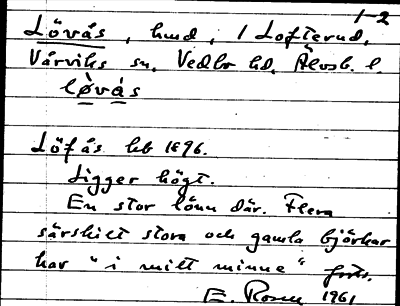 1-2
Lövås, hmd, 1 Lofterud,
Vårviks sn, Vedbo hd, Älvsb. l.
lø̀vås
Löfås hb 1896.
Ligger högt.
En stor lönn där. Flera
särskilt stora och gamla björkar
har "i mitt minne" forts.
E. Rosen 1961